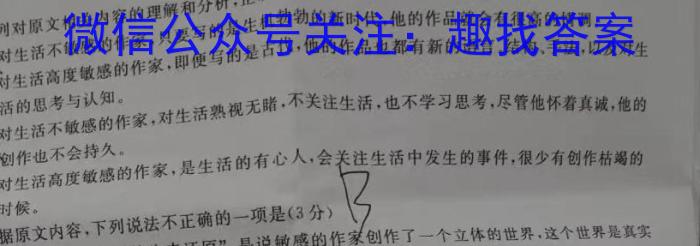 列对原文相关内容的理解和分析,正
微信公众号关注:趣找答案
对生活不敏感的作家,只要写的是生机勃勃的新时代,他的作品
对生活高度敏感的作家,即便写的是古代,他的作品也都有新的
活的思考与认知。
对生活不敏感的作家,对生活熟视无睹,不关注生活,也不学习思考,尽管他怀着真诚,他的
创作也不会持久。
对生活高度敏感的作家,是生活的有心人,会关注生活中发生的事件,很少有创作枯竭的
时候。
B
据原文内容,下列说法不正确的一项是(3分)
是说敏感的作家创作了一个立体的世界,这个世界是真实